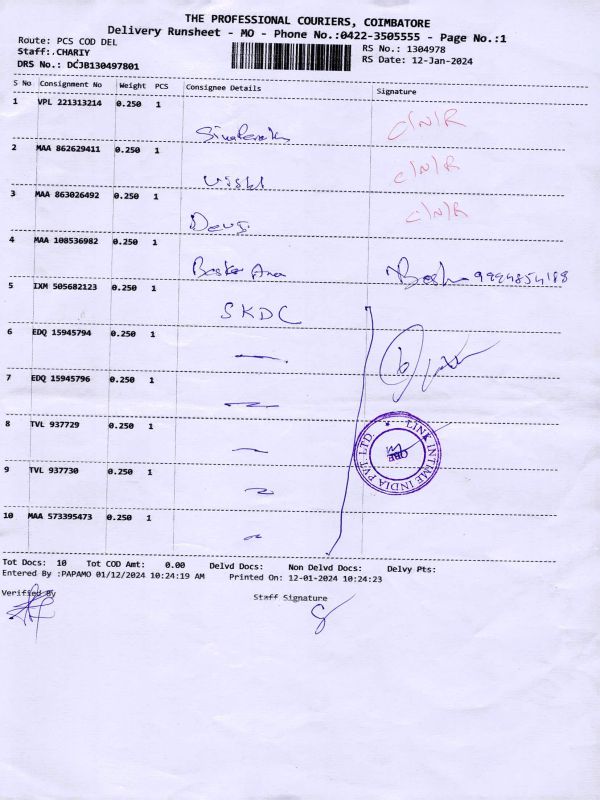 THE PROFESSIONAL COURIERS, COIMBATORE
Delivery Runsheet - MO - Phone No.:0422-3505555 - Page No.:1
Route: PCS COD DEL
RS No.: 1304978
Staff:.CHARIY
RS Date: 12-Jan-2024
DRS No.: DCJB130497801
S No Consignment No Weight PCS Consignee Details Signature
1 VPL 221313214 0.250 1
C/N/R
2 MAA 862629411 0.250 1
C/N/R
3 MAA 863026492 0.250 1
C/N/R
4 MAA 108536982 0.250 1
5 IXM 505682123 0.250 1
SKDC
6 EDQ 15945794 0.250 1
7 EDQ 15945796 0.250 1
8 TVL 937729 0.250 1
LINK INTIME INDIA PVT. LTD
CBE
9 TVL 937730 0.250 1
10 MAA 573395473 0.250 1
Tot Docs: 10 Tot COD Amt: 0.00 Delvd Docs: Non Delvd Docs: Delvy Pts:
Entered By :PAPAMO 01/12/2024 10:24:19 AM Printed On: 12-01-2024 10:24:23
Verified By Staff Signature